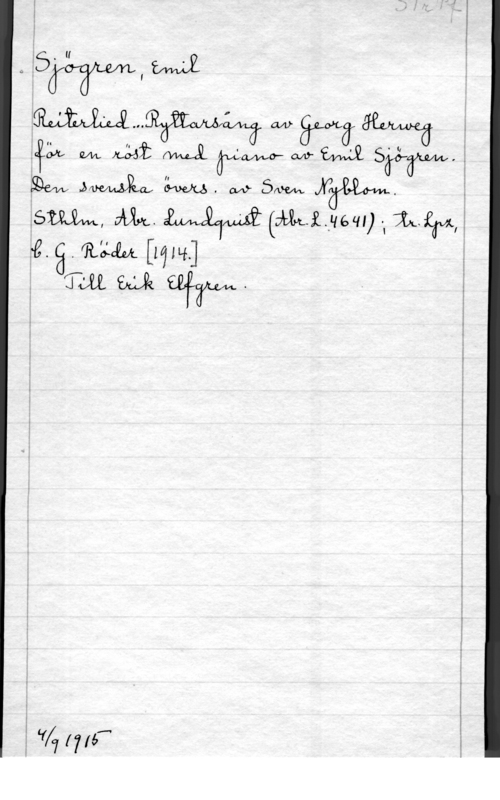 Sjögren, Emil
Reiterlied...Ryttarsång av Georg Herweg
för en röst med piano av Emil Sjögren.
Den svenska övers. av Sven Nyblom.
Sthlm, Abr. Lundquist (Abr. L. 4641); tr. Lpz,
C. G. Röder [1914.]
Till Erik Elfgren.
4/9 1915